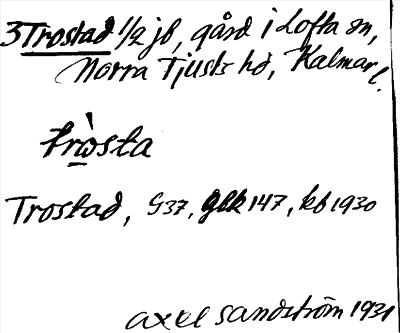 3 Trostad 1/2 jb, gård i Lofta sn,
Norra Tjusts hd, Kalmar l.
trὼsta
Trostad, G37, glk 147, kb 1930
Axel Sandström 1931